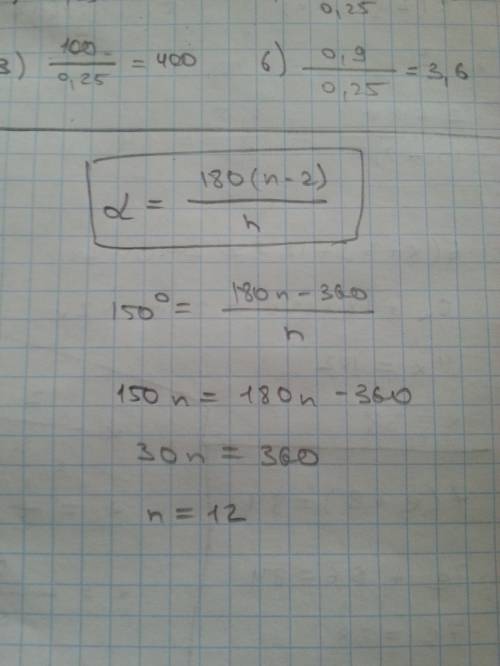 0,25
3) 100/0,25 = 400   6) 0,9/0,25 = 3,6
α = 180(n-2)/n
150° = 180n - 360/n
150n = 180n - 360
30n = 360
n = 12